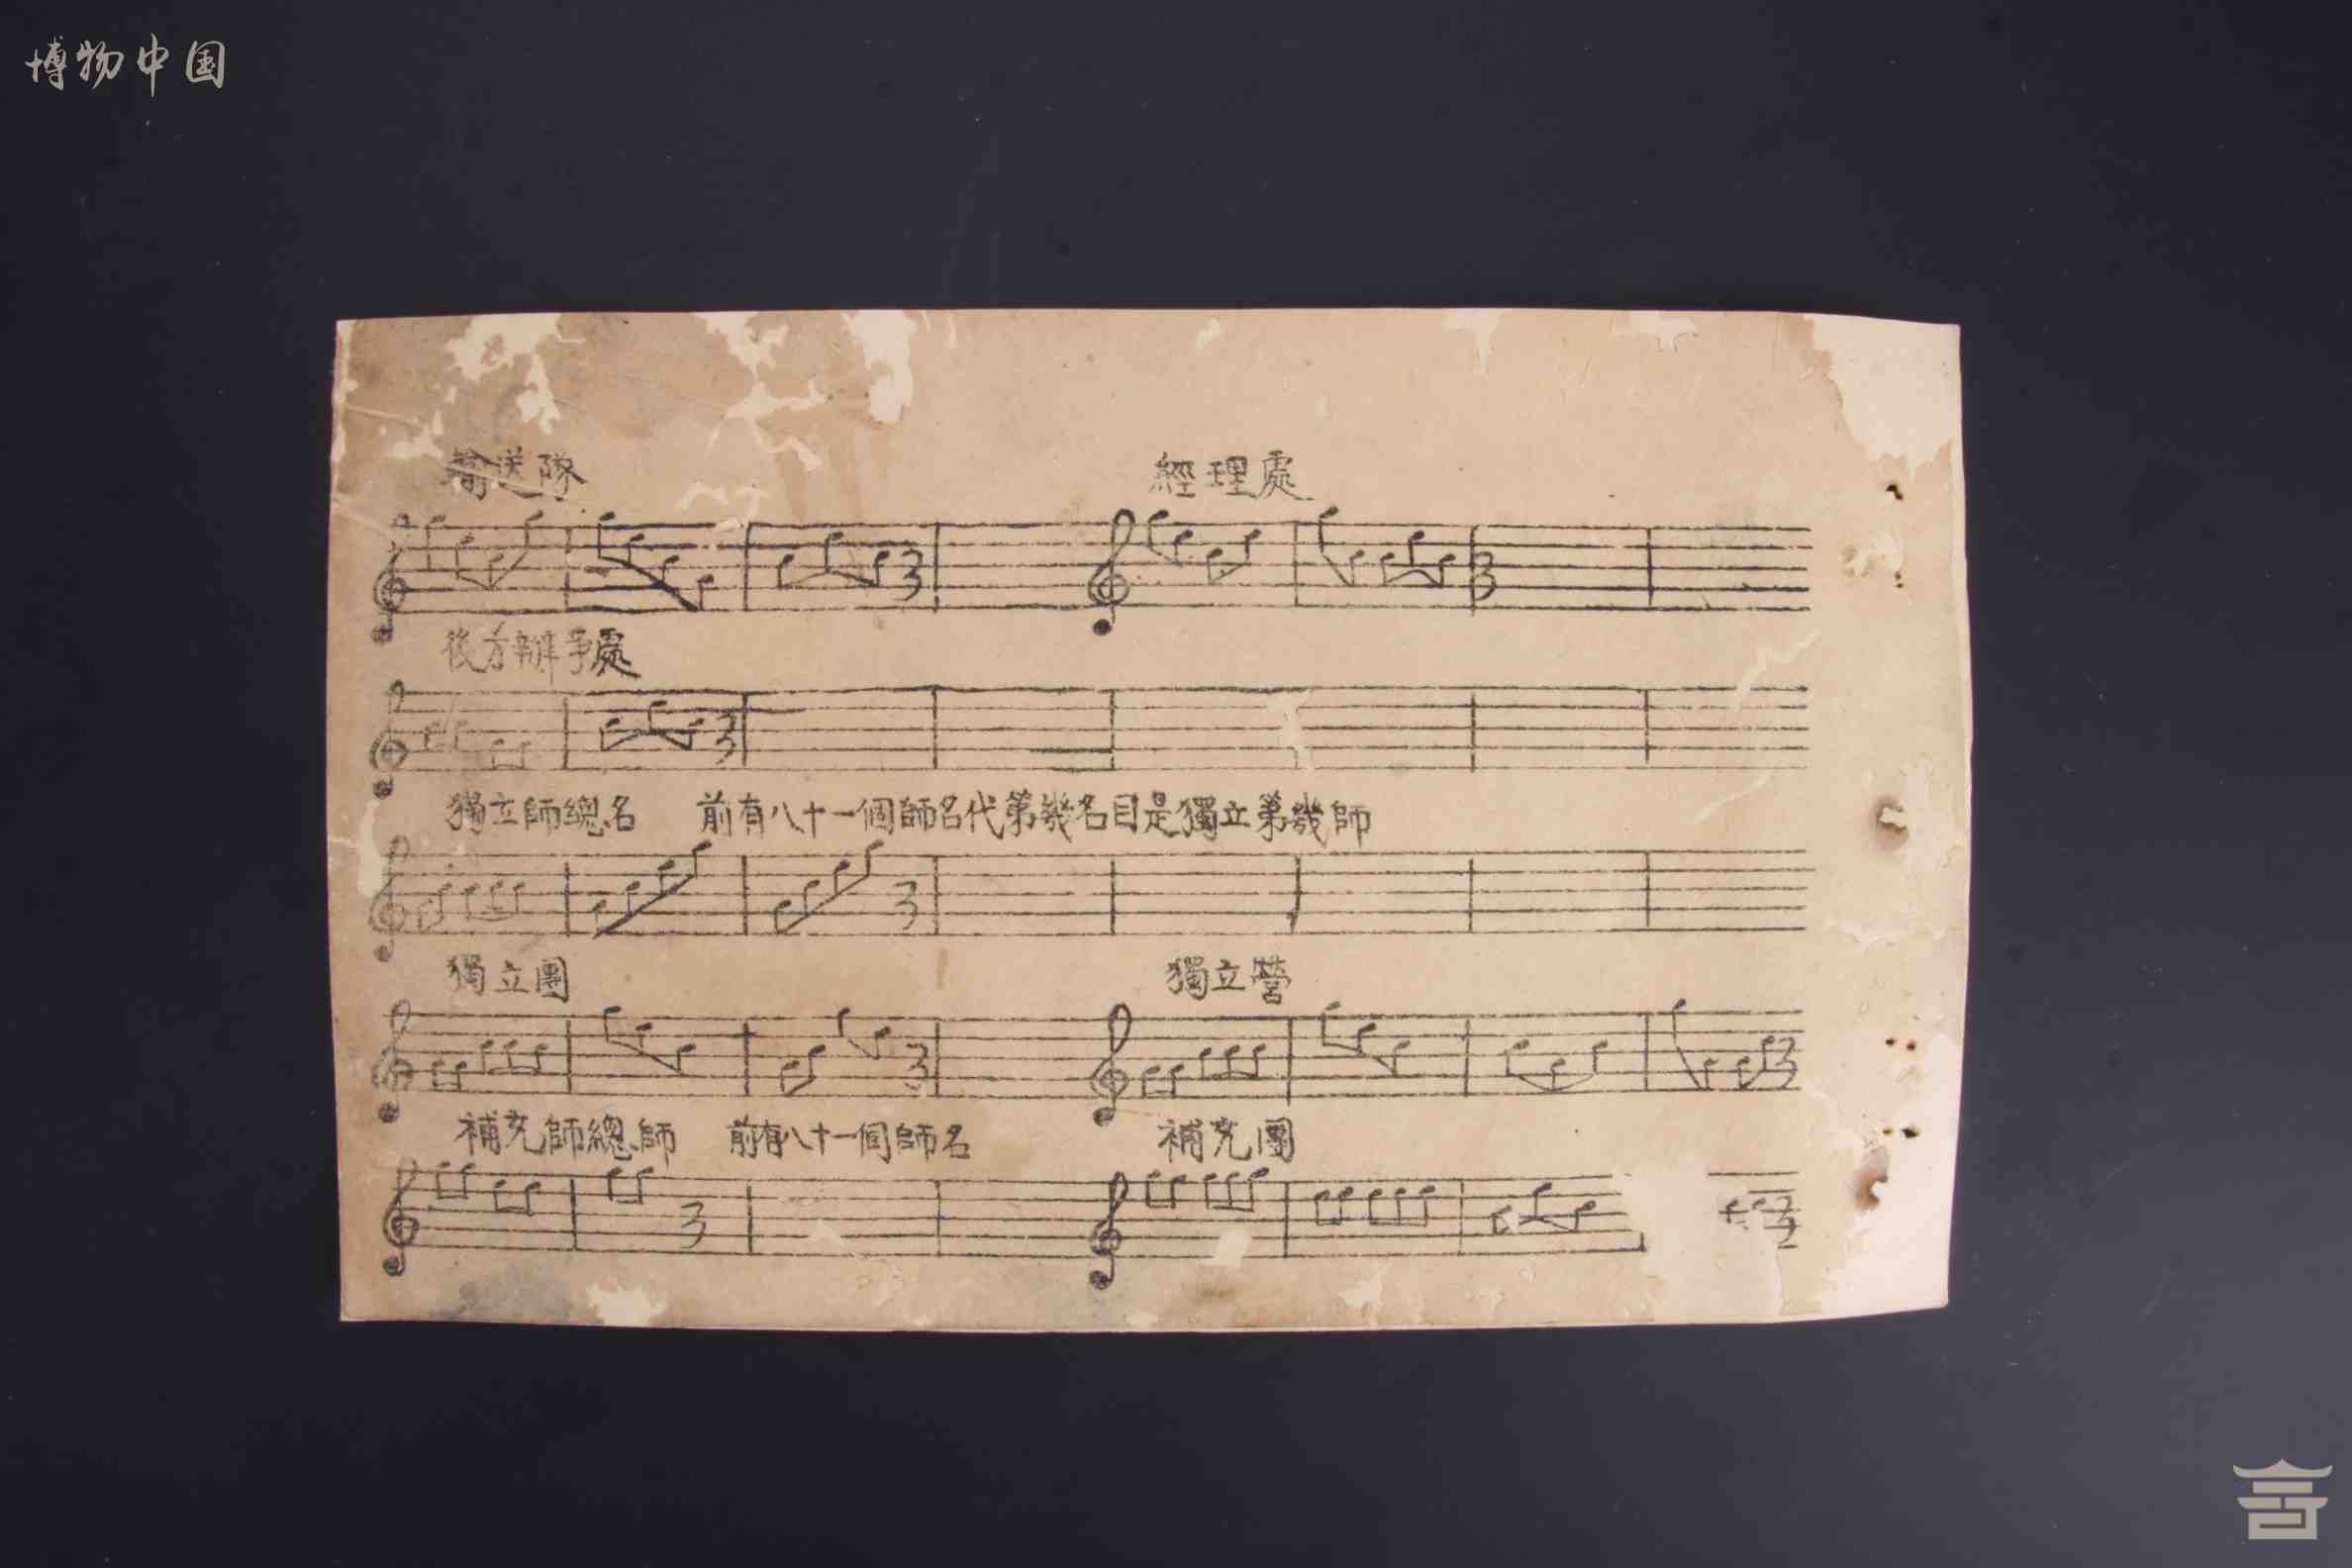 博物中国
輸送隊 經理處
後方辦事處
獨立師總名 前有八十一個師名代第幾名目是獨立第幾師
獨立團 獨立營
補充師總師 前有八十一個師名 補充團